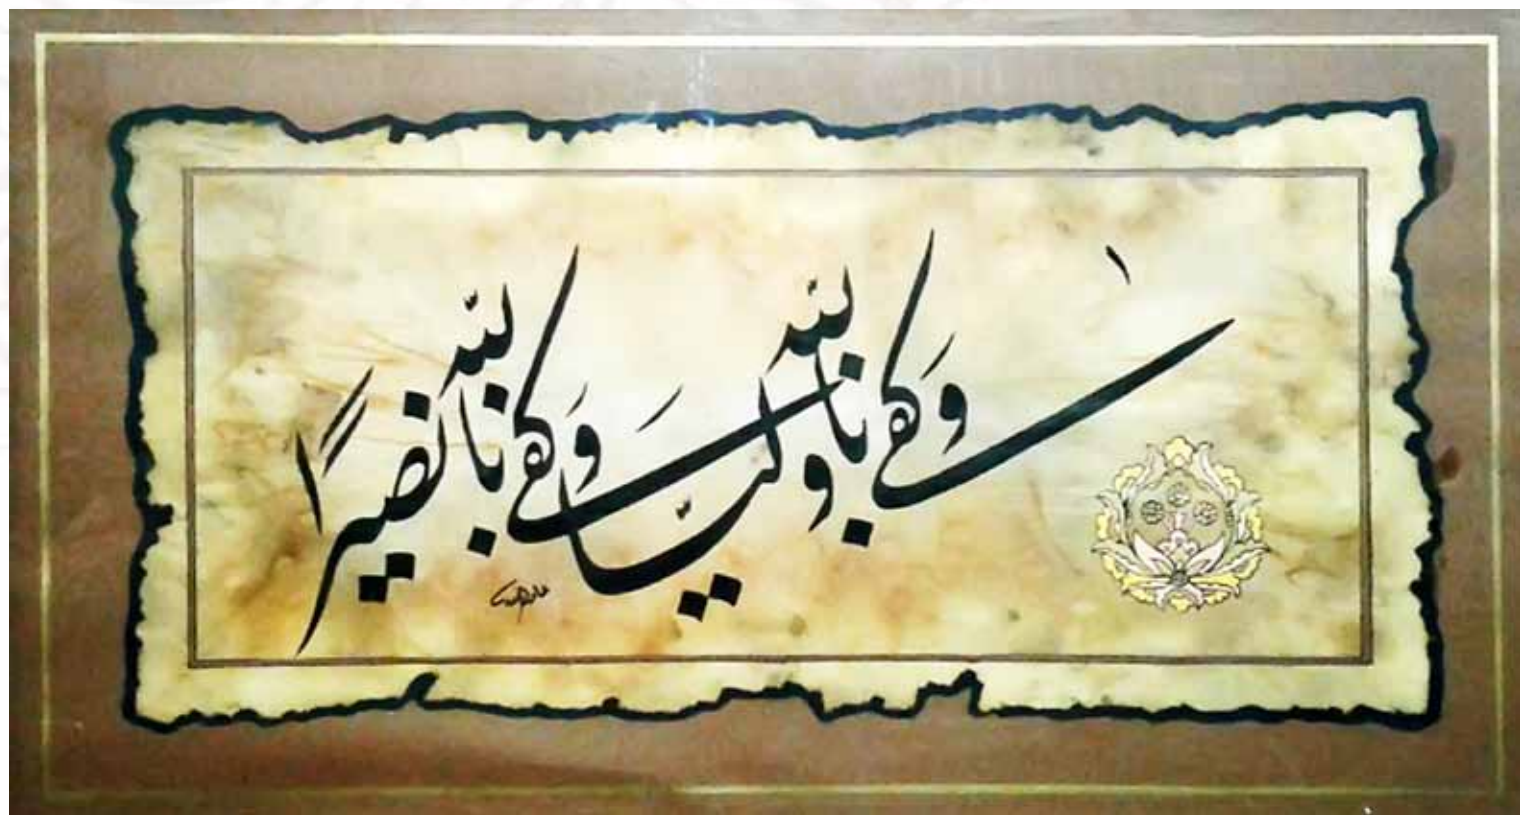 وَكَفىٰ بِاللّٰهِ وَلِيًّا وَكَفىٰ بِاللّٰهِ نَصيرًا